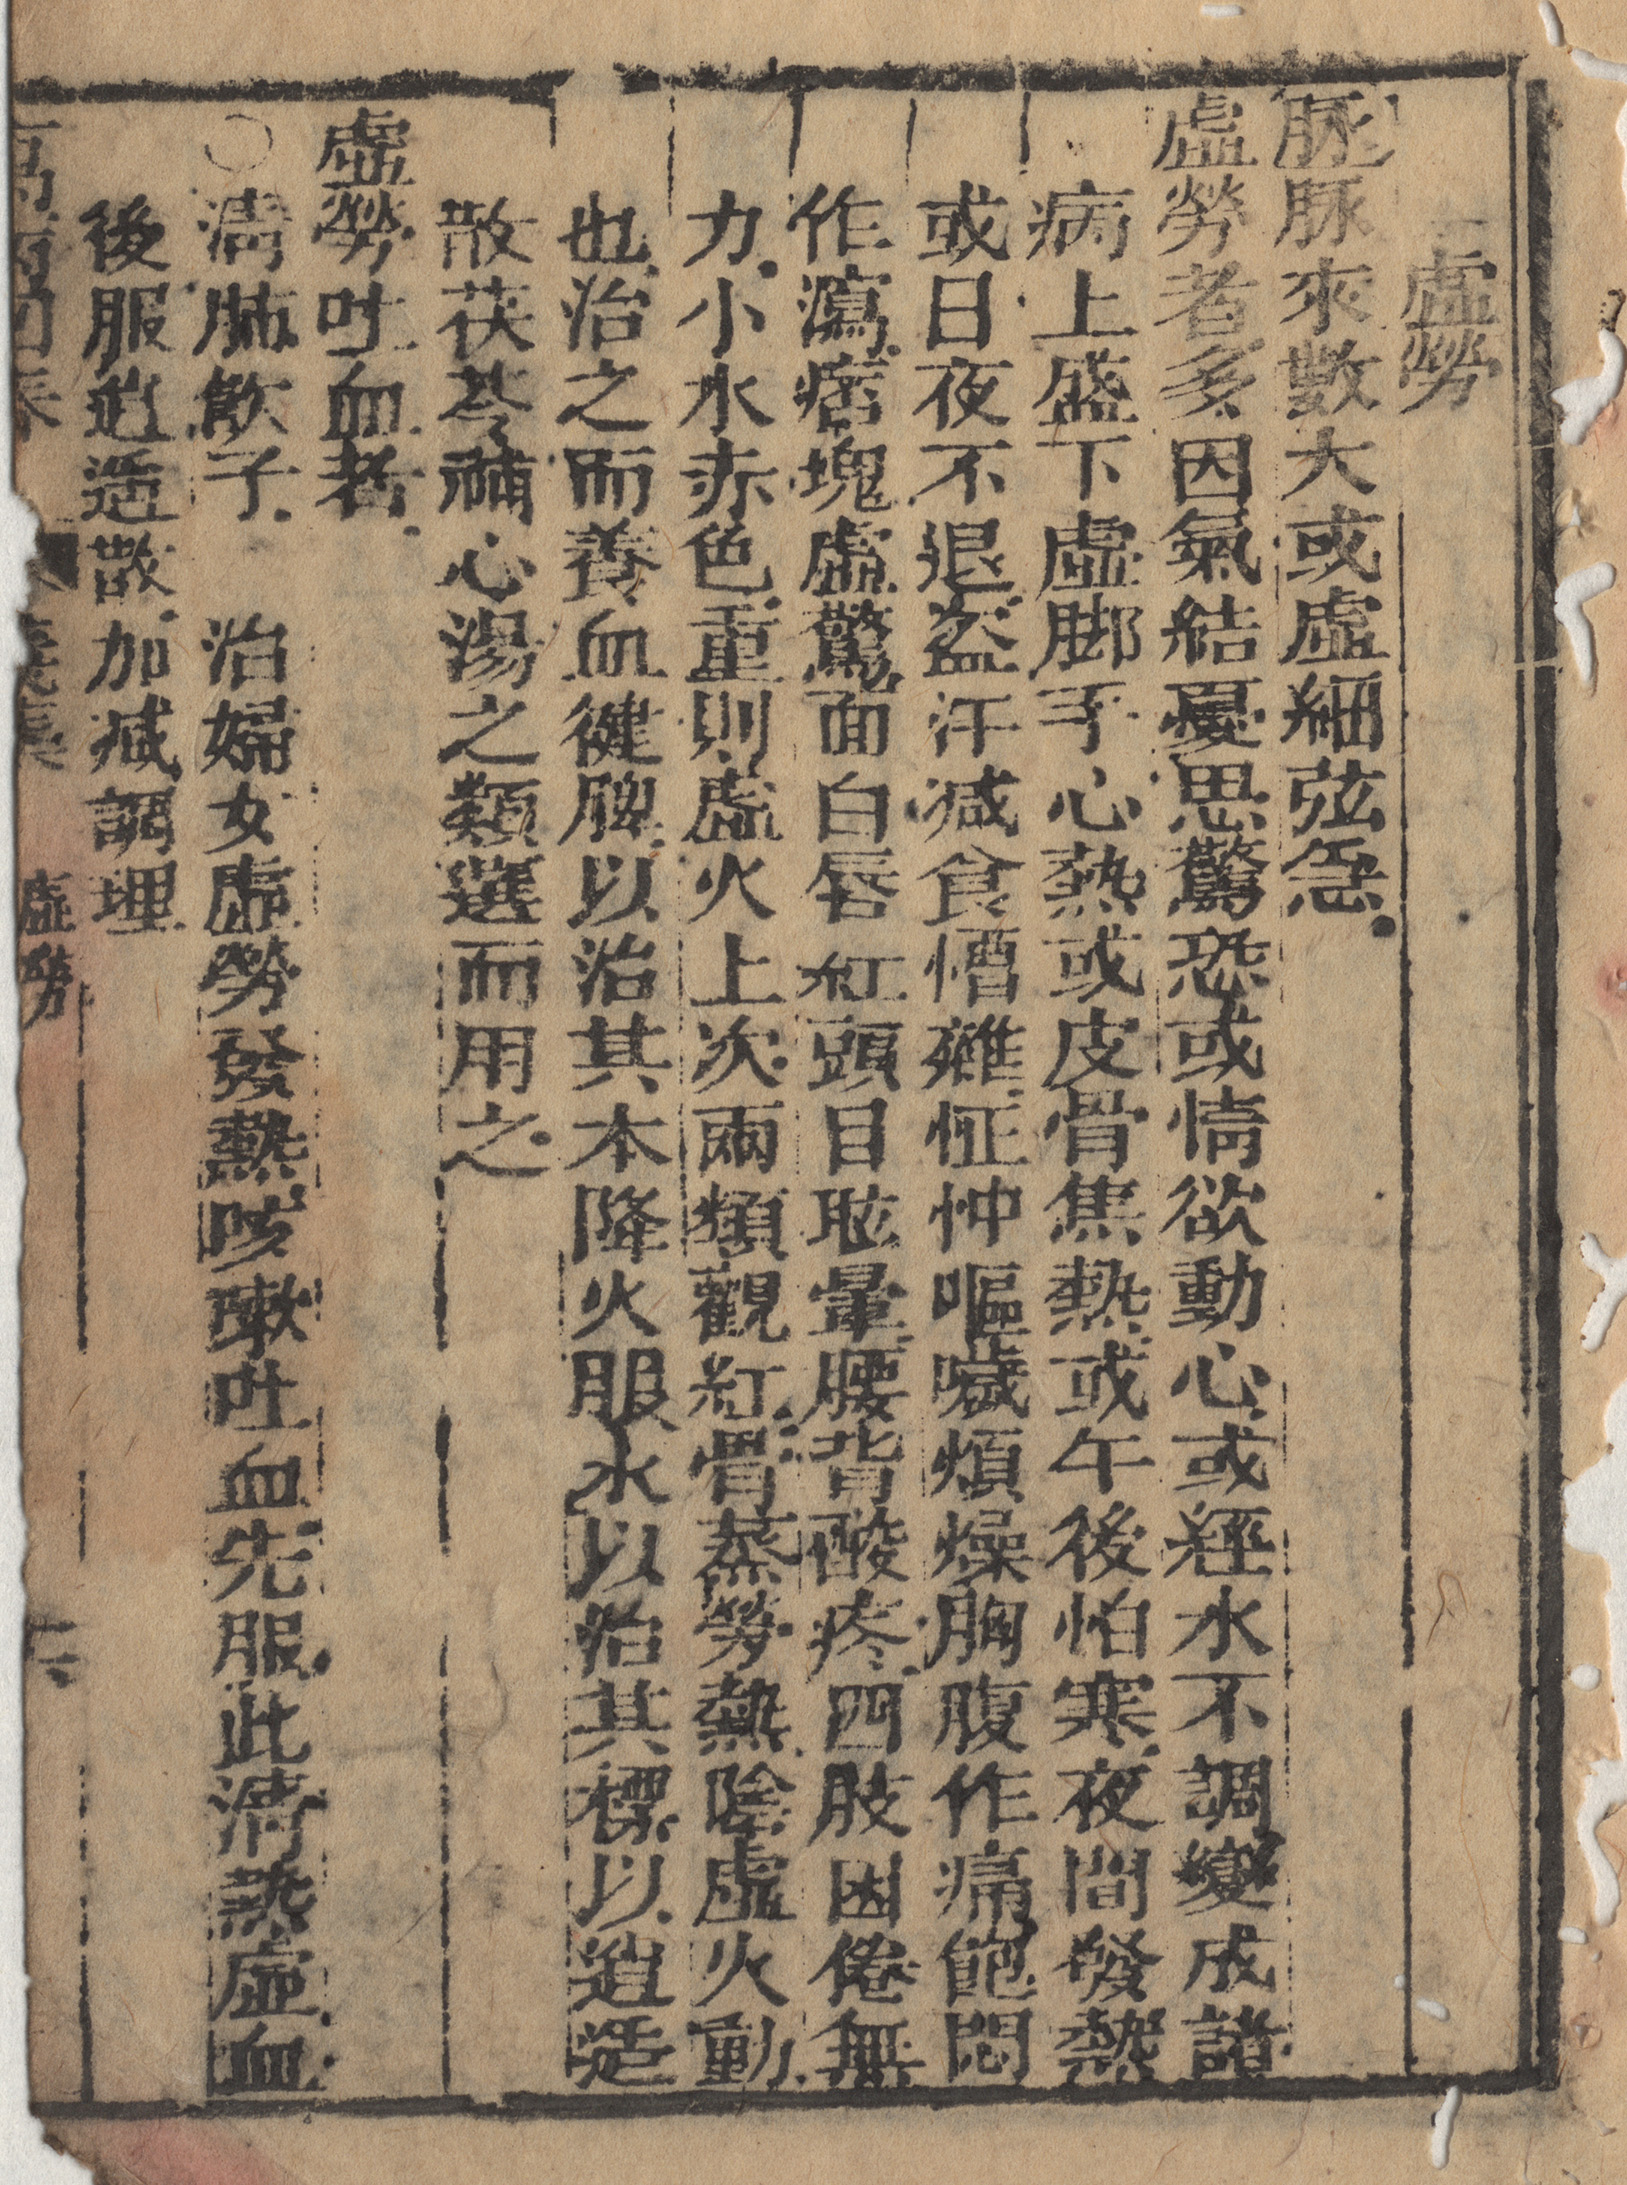 虛勞
脉脉來數大或虛細弦急
虛勞者多因氣結憂思驚恐或情欲動心或經水不調變成諸
病上盛下虛脚手心熱或皮骨焦熱或午後怕寒夜間發熱
或日夜不退盜汗減食嘈雜怔忡嘔噦煩燥胸腹作痛飽悶
作瀉痞塊虛驚面白唇紅頭目眩暈腰背酸疼四肢困倦無
力小水赤色重則虛火上次兩頰觀紅骨蒸勞熱陰虛火動
也治之而養血健脾以治其本降火服水以治其標以逍遙
散茯苓補心湯之類選而用之
虛勞吐血者
○清肺飲子 治婦女虛勞發熱咳嗽吐血先服此清熱虛血
後服逍遙散加減調理
虛勞